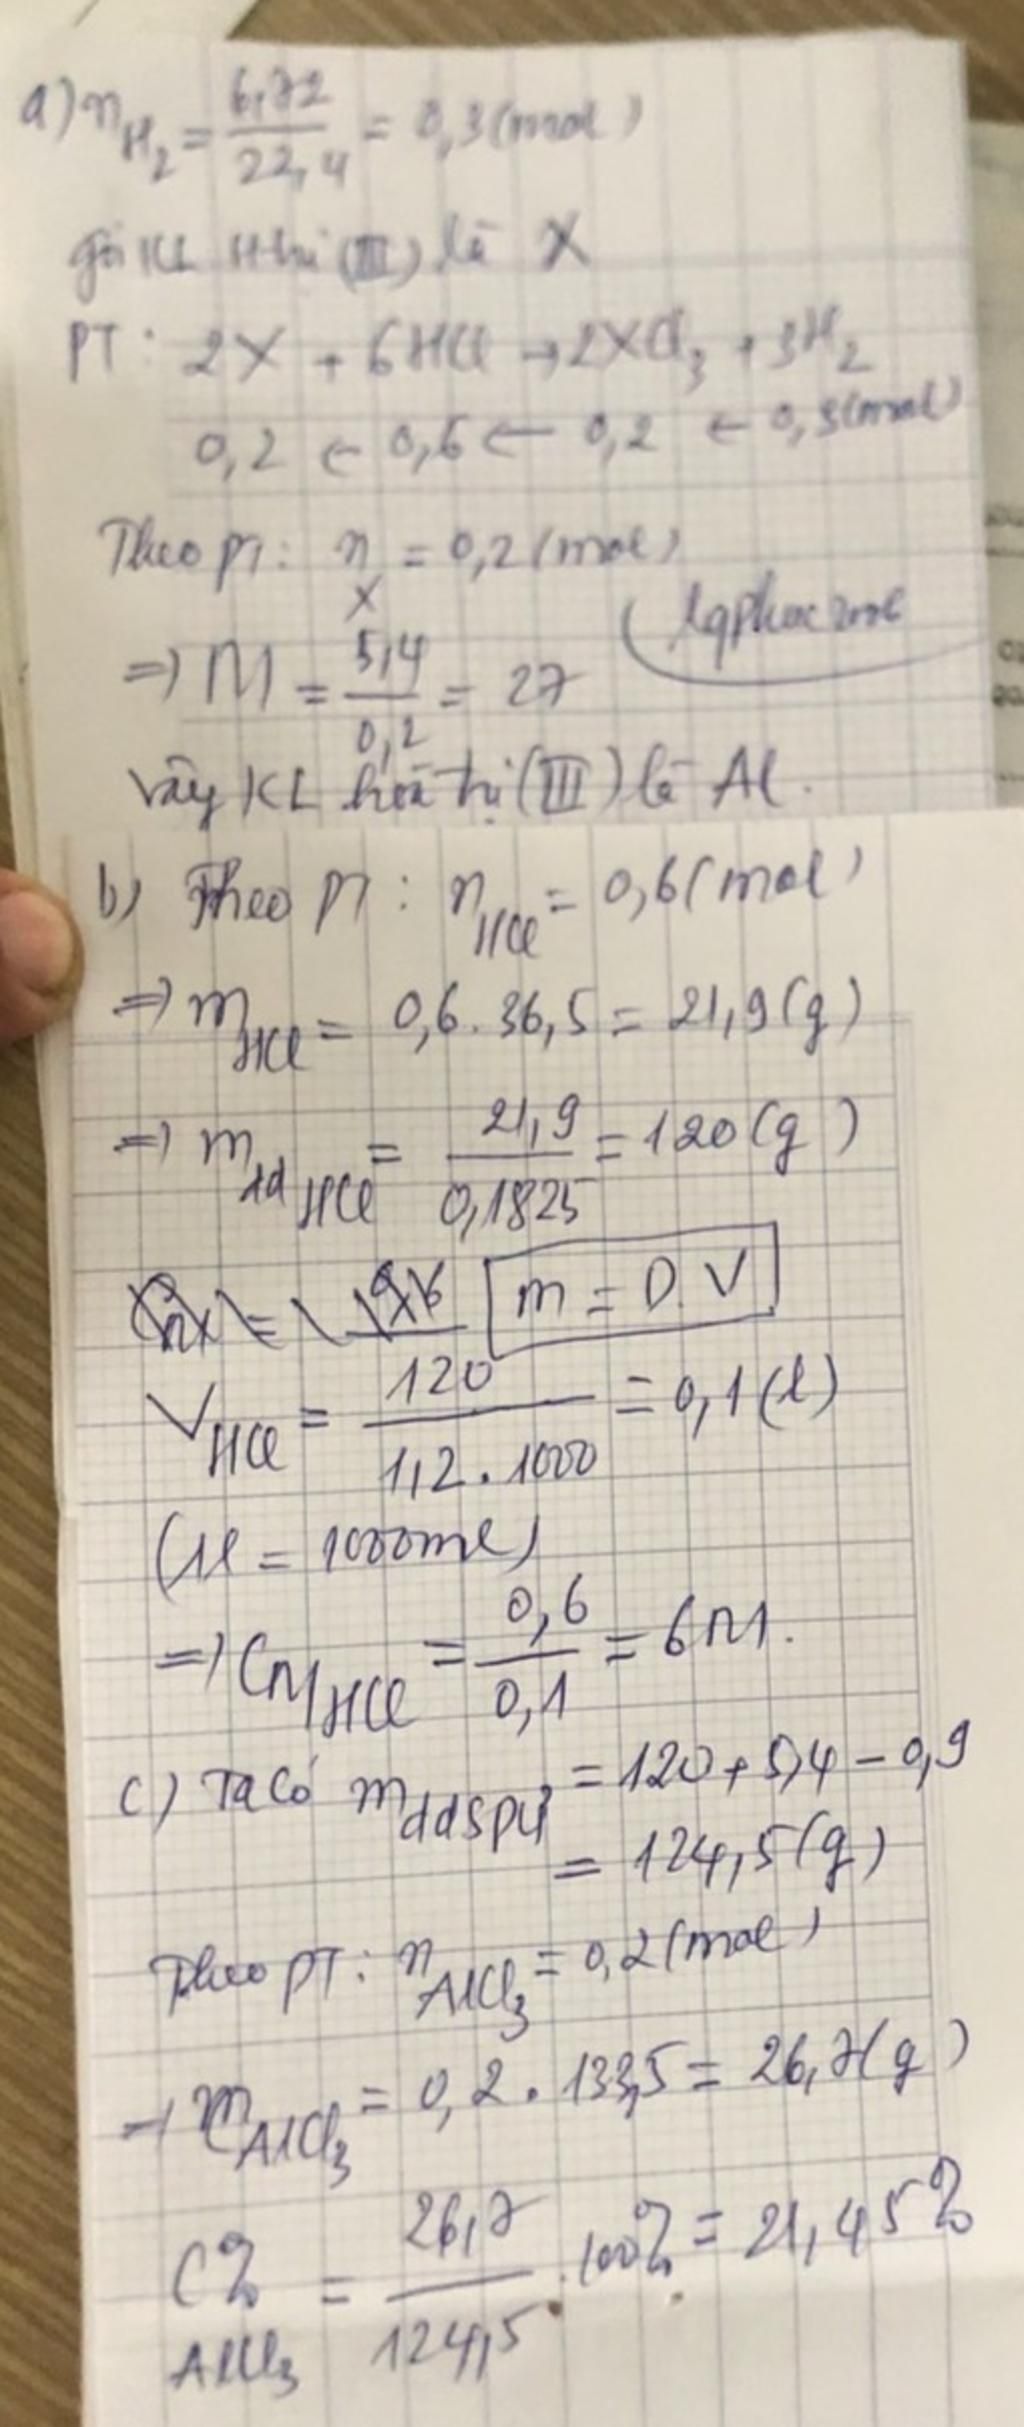 a) nH2 = 6,72 / 22,4 = 0,3 (mol)
gọi KL H trị (III) là X
PT: 2X + 6HCl → 2XCl3 + 3H2
0,2 ← 0,6 ← 0,2 ← 0,3 (mol)
Theo PT: nX = 0,2 (mol)
lqphuc2006
=> M = 5,4 / 0,2 = 27
Vậy KL hóa trị (III) là Al.
b) Theo PT: nHCl = 0,6 (mol)
=> mHCl = 0,6 . 36,5 = 21,9 (g)
=> mddHCl = 21,9 / 0,1825 = 120 (g)
m = D.V
VHCl = 120 / 1,2 . 1000 = 0,1 (l)
(1l = 1000ml)
=> CMHCl = 0,6 / 0,1 = 6M.
c) Ta có mddSPứ = 120 + 5,4 - 0,9
= 124,5 (g)
Theo PT: nAlCl3 = 0,2 (mol)
→ mAlCl3 = 0,2 . 133,5 = 26,7 (g)
C% AlCl3 = 26,7 / 124,5 . 100% = 21,45%